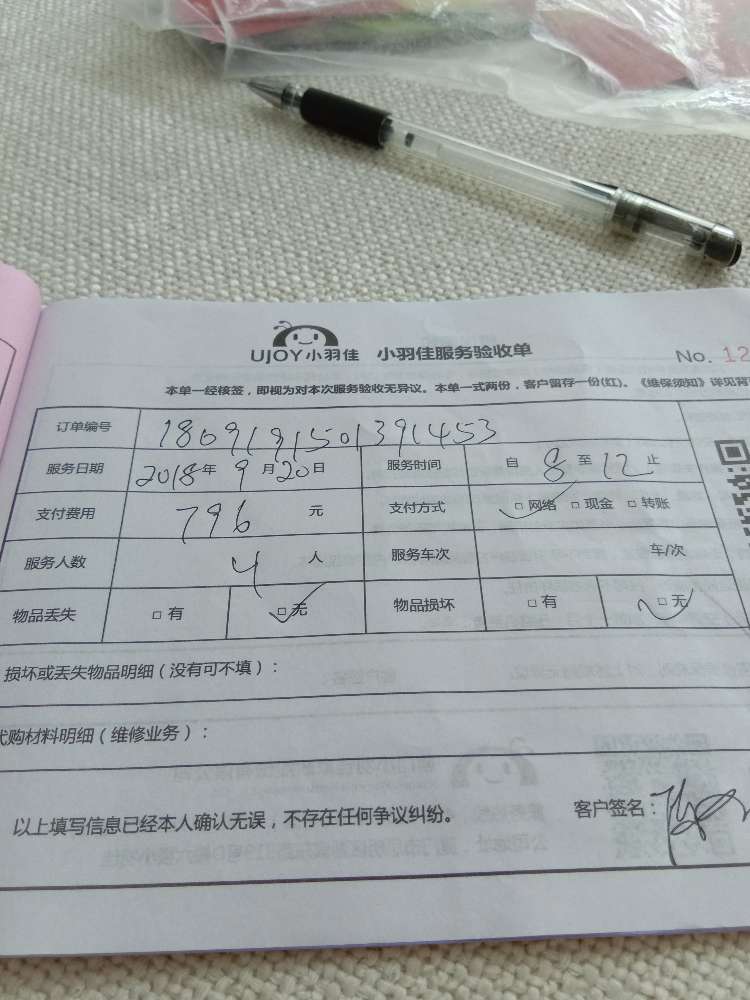 UJOY小羽佳 小羽佳服务验收单 No. 12
本单一经核签，即视为对本次服务验收无异议。本单一式两份，客户留存一份(红)。《维保须知》详见背
订单编号 1809191501391453
服务日期 2018年9月20日 服务时间 自 8 至 12 止
支付费用 796 元 支付方式 □网络 □现金 □转账
服务人数 4 人 服务车次 车/次
物品丢失 □有 □无 物品损坏 □有 □无
损坏或丢失物品明细（没有可不填）：
购材料明细（维修业务）：
以上填写信息已经本人确认无误，不存在任何争议纠纷。 客户签名：